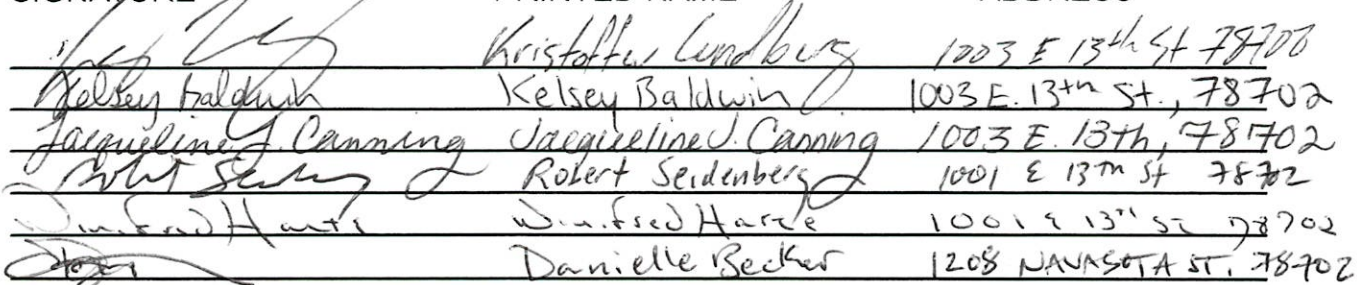 SIGNATURE PRINTED NAME ADDRESS
Kristoffer Lundberg 1003 E 13th St 78702
Kelsey Baldwin Kelsey Baldwin 1003 E. 13th St., 78702
Jacqueline J. Canning Jacqueline J. Canning 1003 E. 13th, 78702
Robert Seidenberg 1001 E 13th St 78702
Winifred Harte 1001 E 13th St 78702
Danielle Becker 1208 NAVASOTA ST. 78702